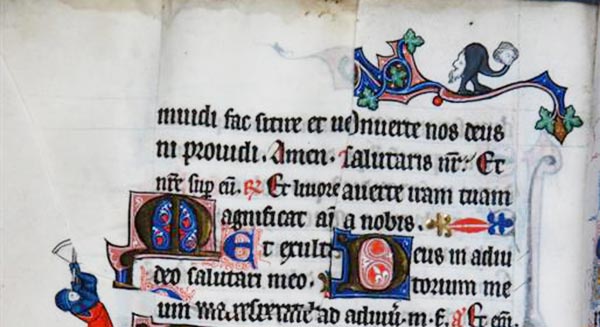 fac sitire et nuerte nos deus
ni prouidi. Amen. salutaris nr̄. Et
nr̄e sup eū. Et auerte iram tuam
Magnificat aī a nobis.
Et exult Deus in adiu
deo salutari meo. torium me
um ad adiuū. m. f. Et